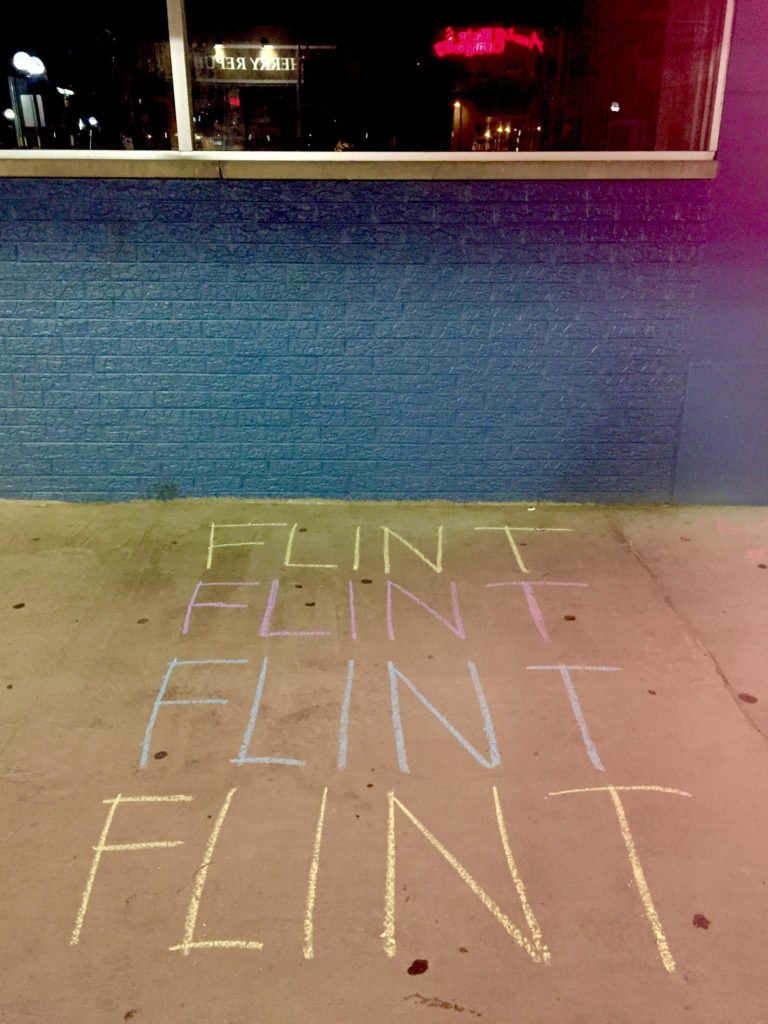 CHERRY REPUB
FLINT
FLINT
FLINT
FLINT